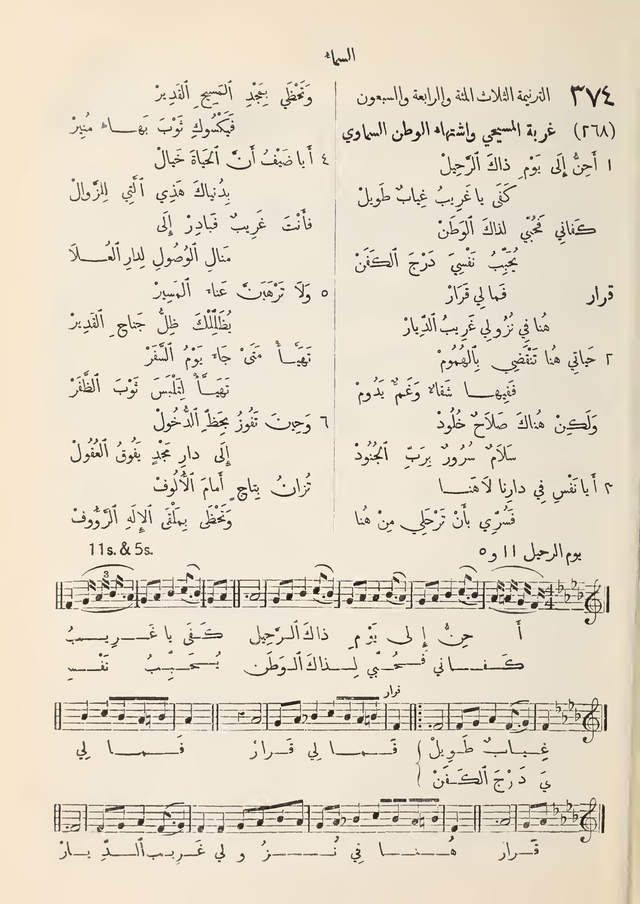 السماء
٣٧٤ الترنيمة الثلاث المئة والرابعة والسبعون
(٢٦٨) غربة المسيحي واشتهاء الوطن السماوي
١ أَحِنُّ إِلَى يَوْمِ ذاكَ ٱلرَّحِيلْ
كَفَى يا غَرِيبُ غِيابٌ طَوِيلْ
كَفاني فَحُبِّي لذاكَ ٱلوَطَنْ
يُحَبِّبُ نَفْسِيَ دَرْجَ ٱلكَفَنْ
قرار فَما لي قَرَارْ
هُنا في نُزُولي غَرِيبُ ٱلدِّيارْ
٢ حَياتي هُنا تَنْقَضِي بِٱلهُمُومْ
فَفِيها شَقاءٌ وَغَمٌّ يَدُومْ
وَلَكِنْ هُناكَ صَلاحٌ خُلُودْ
سَلامٌ سُرُورٌ بِرَبِّ ٱلجُنُودْ
٣ أَيا نَفْسِ في دارِنا لا هَنا
فَسُرِّي بأَنْ تَرْحَلي مِنْ هُنا
وَتَحْظَي بِمَجْدِ ٱلمَسِيحِ ٱلقَدِيرْ
فَيَكْسُوكِ ثَوْبَ بَهاءٍ مُنِيرْ
٤ أَيا ضَيْفُ أَنَّ ٱلحَيَاةَ خَيالْ
بِدُنياكَ هَذِي ٱلَّتِي لِلزَّوالْ
فأَنْتَ غَرِيبٌ فَبادِرْ إِلَى
مَنالِ ٱلوُصُولِ لِدارِ ٱلعُلا
٥ وَلا تَرْهَبَنَّ عَناءَ ٱلمَسِيرْ
يُظَلِّلْكَ ظِلُّ جَناحِ ٱلقَدِيرْ
تَهَيَّأْ مَتَى جاءَ يَوْمُ ٱلسَّفَرْ
تَهَيَّأْ لِتَلْبَسَ ثَوْبَ ٱلظَّفَرْ
٦ وَحِينَ تَفُوزُ بِحَظِّ ٱلدُّخُولْ
إِلَى دارِ مَجْدٍ يَفُوقُ ٱلعُقُولْ
تُزانُ بِتاجٍ أَمامَ ٱلأُلُوفْ
وَتَحْظَى بِمَلْقَى ٱلإِلهِ ٱلرَّؤُوفْ
يوم الرحيل ١١ و ٥ 11s. & 5s.
أَ حِنُّ إِلى يَوْمِ ذاكَ ٱلرَّحِيل كَفَى يا غَرِيبُ
كَفاني فَحُبِّي لِذاكَ ٱلوَطَن يُحَبِّبُ نَفْسِ
قرار
غِيابٌ طَوِيلْ فَما لي قَرارْ فَما لي
يَ دَرْجَ ٱلكَفَنْ
قَرارْ هُنا في نُزُولي غَرِيبُ ٱلدِّيارْ